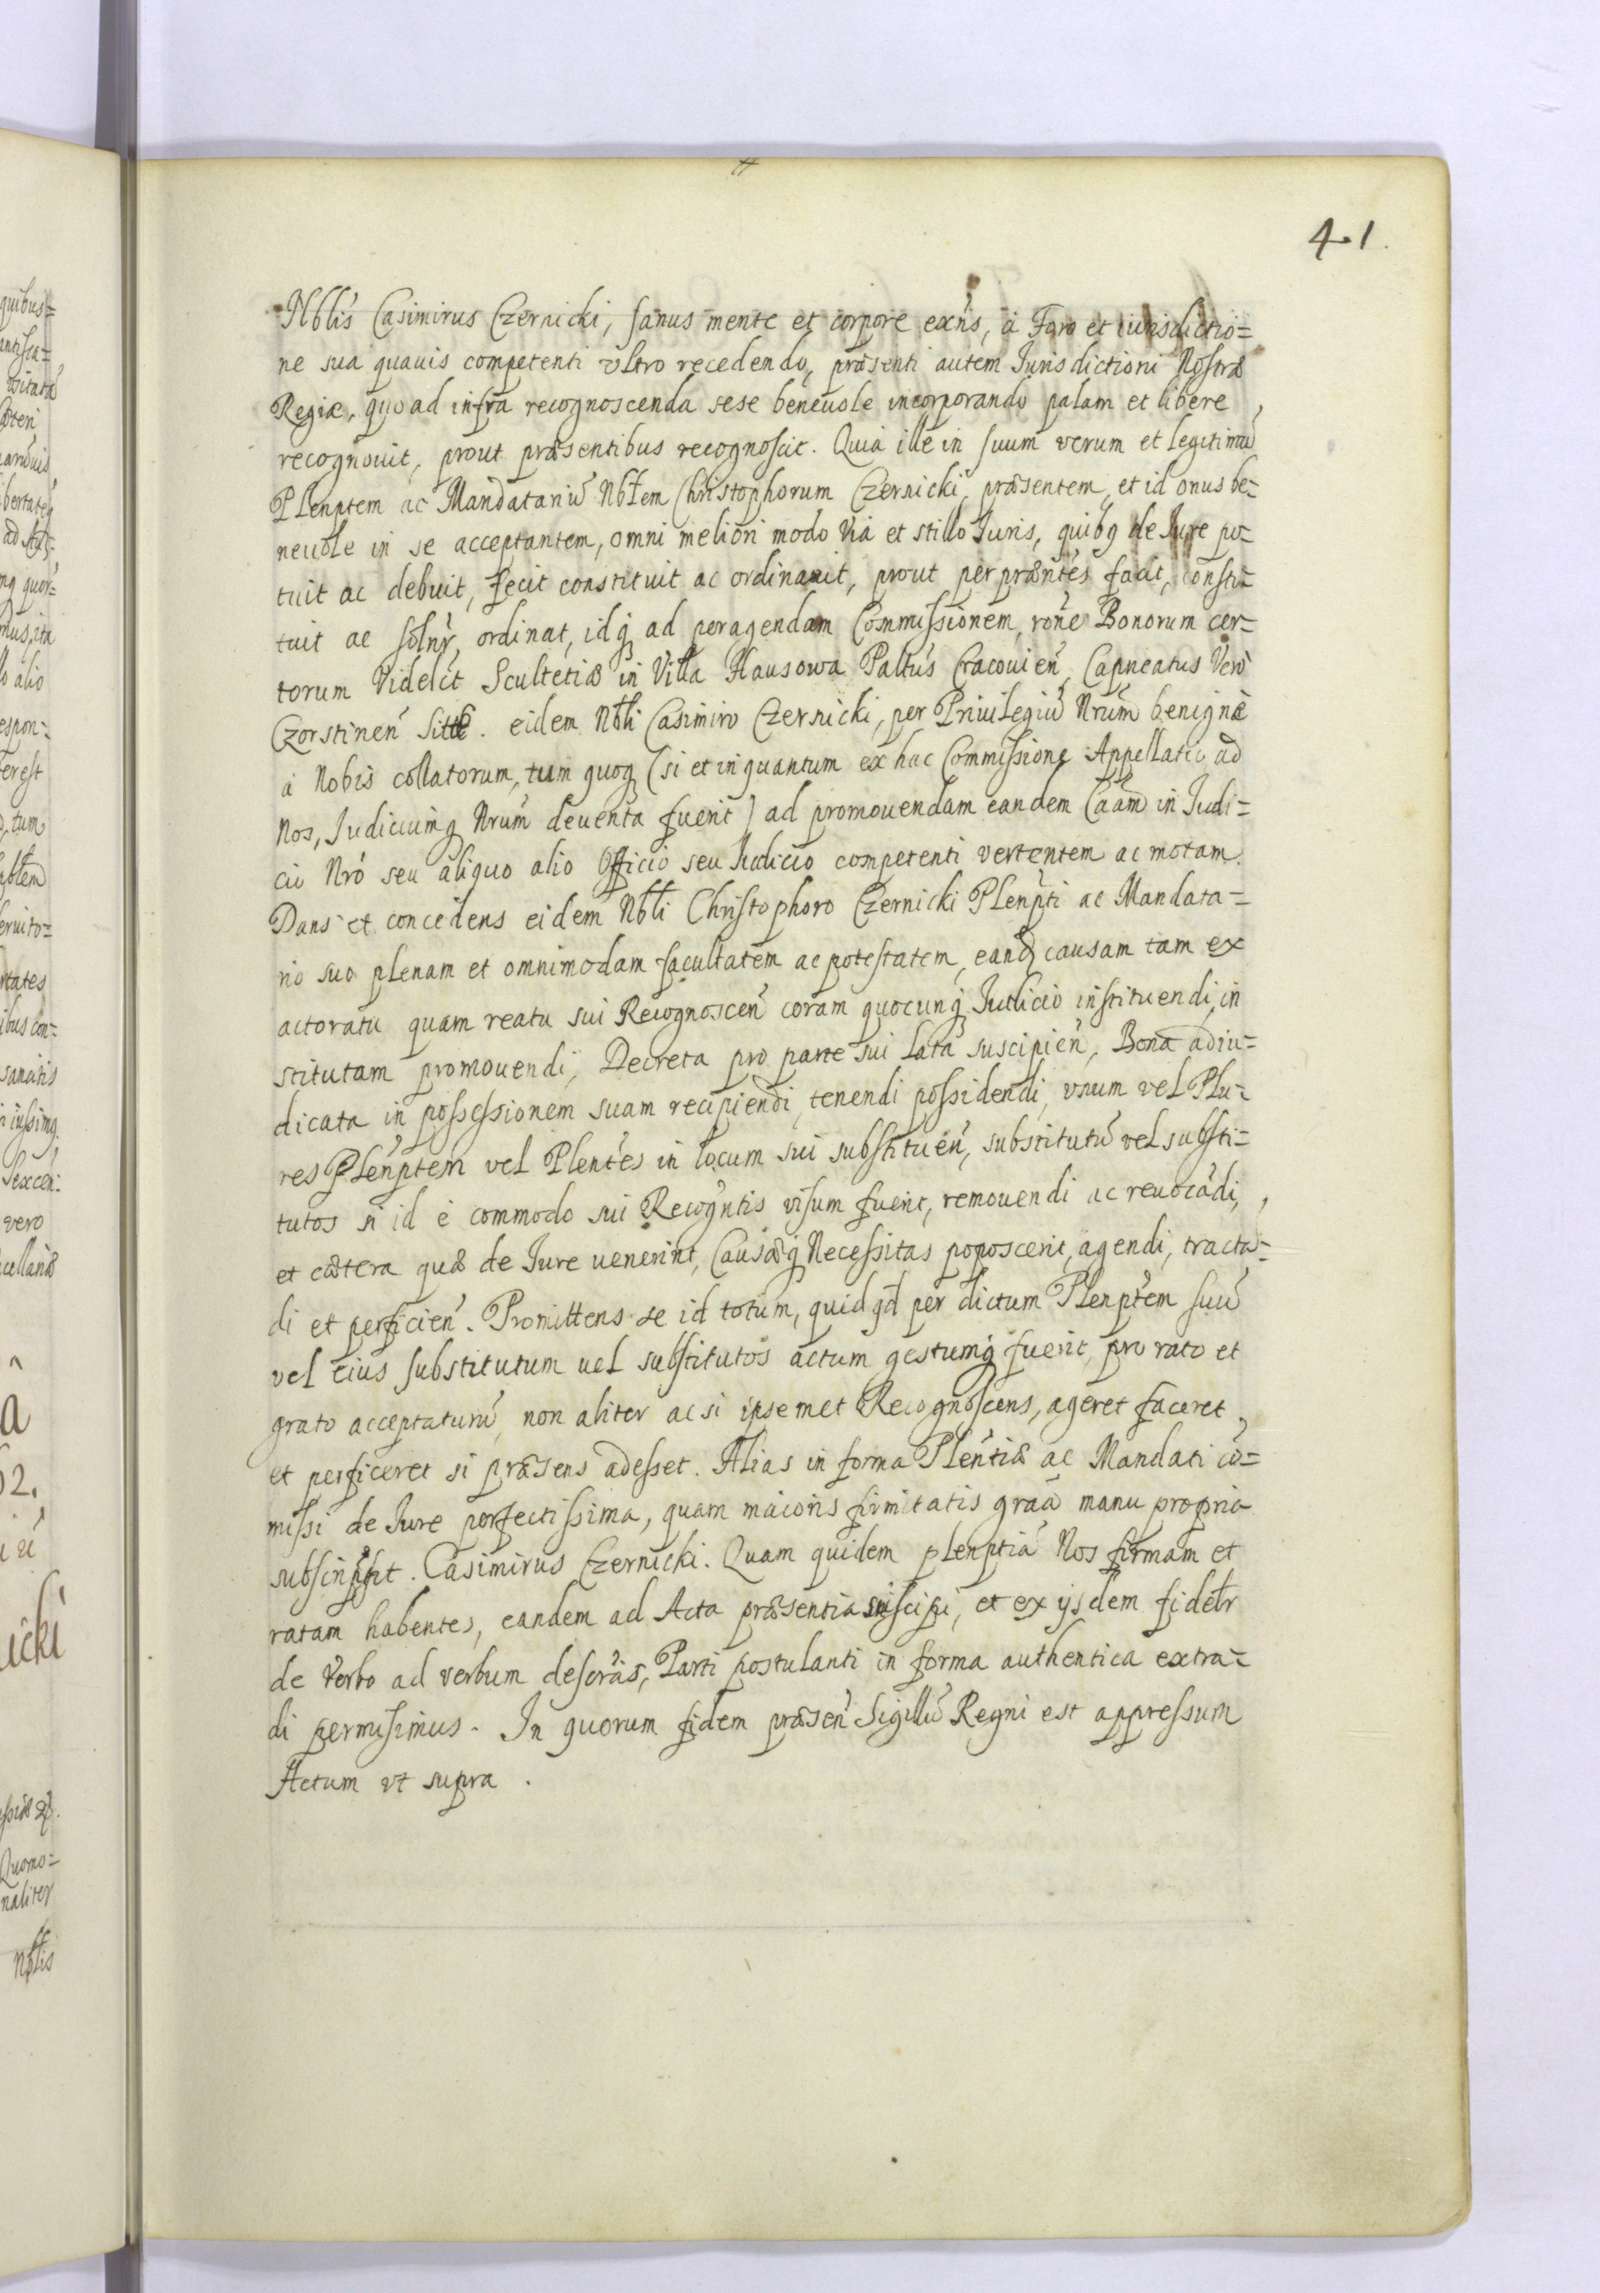 41.
Nblis Casimirus Czernicki, sanus mente et corpore exns, à Foro et iurisdictio=
ne sua quauis competenti vltro recedendo, præsenti autem Jurisdictioni Nostræ
Regiæ, quoad infra recognoscenda sese beneuole incorporando palam et libere
recognouit, prout præsentibus recognoscit. Quia ille in suum verum et legitimũ
Plenptem ac Mandatariũ Nbtem Christophorum Czernicki, præsentem, et id onus be=
neuole in se acceptantem, omni meliori modo via et stillo Juris, quibq de Jure po=
tuit ac debuit, fecit constituit ac ordinauit, prout per præntes facit, consti=
tuit ac solnr, ordinat, idq ad peragendam Commissionem, rone Bonorum cer=
torum videlct Scultetiæ in Villa Hausowa Paltus Cracouien, Capneatus Vero
Czorstinen sittæ. eidem Nbli Casimiro Czernicki, per Priuilegiũ Nrum benignè
à Nobis collatorum, tum quoq (si et inquantum ex hac Commissione Appellatio ad
Nos, Judiciumq Nrum deuenta fuerit) ad promouendam eandem Caam in Judi=
cio Nro seu aliquo alio Officio seu Judicio competenti vertentem ac motam.
Dans et concedens eidem Nbli Christophoro Czernicki Plenpti ac Mandata=
rio suo plenam et omnimodam facultatem ac potestatem, eand causam tam ex
actoratu quam reatu sui Recognoscen coram quocunq Judicio instituendi, in
stitutam promouendi, Decreta pro parte sui lata suscipien, Bona adiu=
dicata in possessionem suam recipiendi, tenendi possidendi, vnum vel Plu=
res Plenptem vel Plentes in locum sui substituen, substitutũ vel substi=
tutos si id è commodo sui Recogntis visum fuerit, remouendi ac reuocãdi,
et cætera quæ de Jure uenerint, Causæq Necessitas poposcerit, agendi, tractã=
di et perficien. Promittens se id totum, quidqd per dictum Plenptem suũ
vel eius substitutum uel substitutos actum gestumq fuerit, pro rato et
grato acceptaturũ, non aliter ac si ipsemet Recognoscens, ageret faceret
et perficeret si præsens adesset. Alias in forma Plentiæ ac Mandati cõ=
missi de Jure perfectissima, quam maioris firmitatis graa manu propria
subscripsit. Casimirus Czernicki. Quam quidem plenptiã Nos firmam et
ratam habentes, eandem ad Acta præsentia suscipi, et ex ijsdem fidelr
de verbo ad verbum descrãs, Parti postulanti in forma authentica extra=
di permisimus. In quorum fidem præsen Sigillũ Regni est appressum
Actum vt supra.